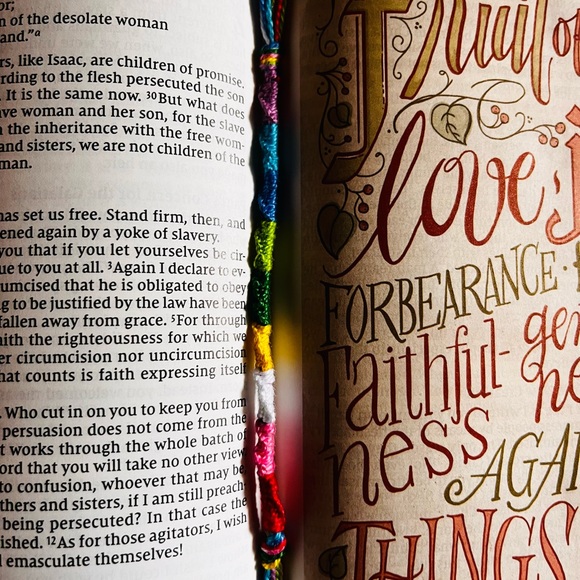 or;
n of the desolate woman
and."a
rs, like Isaac, are children of promise.
rding to the flesh persecuted the son
. It is the same now. 30But what does
ave woman and her son, for the slave
n the inheritance with the free wom-
and sisters, we are not children of the
man.
has set us free. Stand firm, then, and
ened again by a yoke of slavery.
you that if you let yourselves be cir-
ue to you at all. 3Again I declare to ev-
umcised that he is obligated to obey
g to be justified by the law have been
fallen away from grace. 5For through
aith the righteousness for which we
er circumcision nor uncircumcision
hat counts is faith expressing itself
. Who cut in on you to keep you from
persuasion does not come from the
t works through the whole batch of
ord that you will take no other view
to confusion, whoever that may be
thers and sisters, if I am still preach
being persecuted? In that case the
ished. 12As for those agitators, I wish
l emasculate themselves!
Fruit of
love, j
FORBEARANCE
Faithful- gen
ness ne
AGAI
THINGS